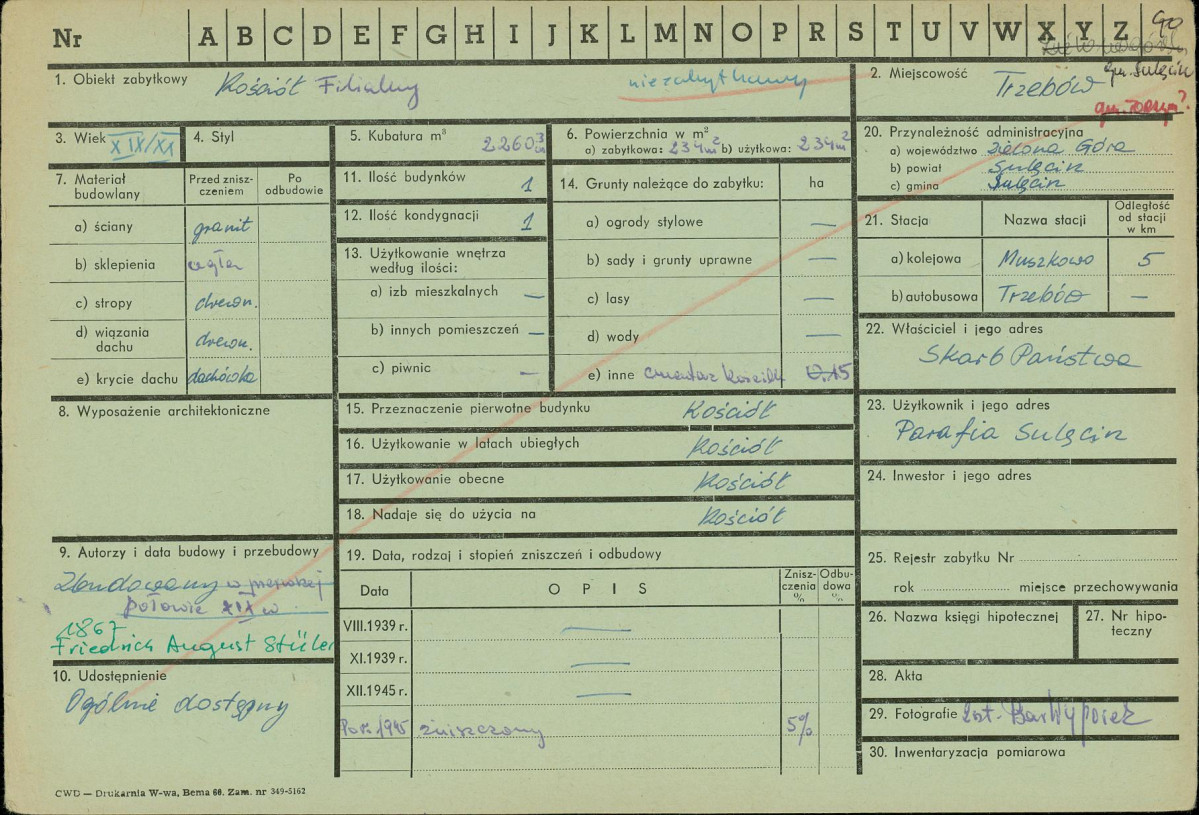 Nr A B C D E F G H I J K L M N O P R S T U V W X Y Z 90
1. Obiekt zabytkowy Kościół Filialny niezabytkowy
2. Miejscowość Trzebów gm. Sulęcin
3. Wiek XIX/XX
4. Styl
5. Kubatura m³ 2260 m³
6. Powierzchnia w m²
a) zabytkowa: 234 m² b) użytkowa: 234 m²
7. Materiał budowlany
Przed zniszczeniem
Po odbudowie
a) ściany granit
b) sklepienia cegła
c) stropy drewn.
d) wiązania dachu drewn.
e) krycie dachu dachówka
8. Wyposażenie architektoniczne
9. Autorzy i data budowy i przebudowy
Zbudowany w
połowie XIX w
1867
Friedrich August Stüler
10. Udostępnienie
Ogólnie dostępny
11. Ilość budynków 1
12. Ilość kondygnacji 1
13. Użytkowanie wnętrza według ilości:
a) izb mieszkalnych —
b) innych pomieszczeń —
c) piwnic —
14. Grunty należące do zabytku: ha
a) ogrody stylowe —
b) sady i grunty uprawne —
c) lasy —
d) wody —
e) inne cmentarz 0.15
15. Przeznaczenie pierwotne budynku Kościół
16. Użytkowanie w latach ubiegłych Kościół
17. Użytkowanie obecne Kościół
18. Nadaje się do użycia na Kościół
19. Data, rodzaj i stopień zniszczeń i odbudowy
Data OPIS Zniszczenia % Odbudowa %
VIII.1939 r. —
XI.1939 r. —
XII.1945 r. —
Po r. 1945 zniszczony 5%
20. Przynależność administracyjna
a) województwo Zielona Góra
b) powiat Sulęcin
c) gmina Sulęcin
21. Stacja Nazwa stacji Odległość od stacji w km
a) kolejowa Muszkowo 5
b) autobusowa Trzebów —
22. Właściciel i jego adres
Skarb Państwa
23. Użytkownik i jego adres
Parafia Sulęcin
24. Inwestor i jego adres
25. Rejestr zabytku Nr
rok miejsce przechowywania
26. Nazwa księgi hipotecznej
27. Nr hipoteczny
28. Akta
29. Fotografie
30. Inwentaryzacja pomiarowa
CWD — Drukarnia W-wa, Bema 60. Zam. nr 349-5162